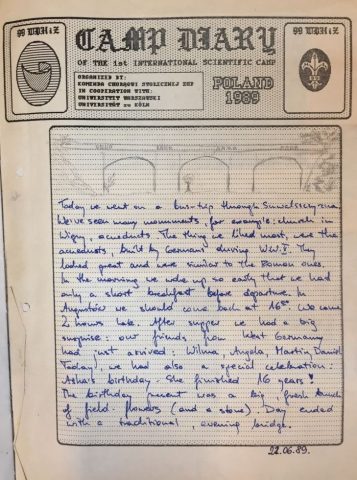 99 WDH i Z
CAMP DIARY
99 WDH i Z
OF THE 1st INTERNATIONAL SCIENTIFIC CAMP
ORGANIZED BY:
KOMENDA CHORĄGWI STOŁECZNEJ ZHP
IN COOPERATION WITH:
UNIWERSYTET WARSZAWSKI
UNIVERSITÄT zu KÖLN
POLAND
1989
Today we went on a bus-trip through Suwalszczyzna.
We've seen many monuments, for example: church in
Wigry, aqueducts. The thing we liked most, were the
aqueducts, build by Germans during W.W.I. They
looked great and were similar to the Roman ones.
In the morning we woke up so early that we had
only a short breakfast before departure. In
Augustów we should come back at 16°°. We came
2 hours late. After supper we had a big
surprise: our friends from West Germany
had just arrived: Wilma, Angela, Martin, Daniel
Today, we had also a special celebration:
Asha's birthday. She finished 16 years!
The birthday present was a big, fresh bunch
of field-flowers (and a stone). Day ended
with a traditional, evening bridge.
22.06.89.